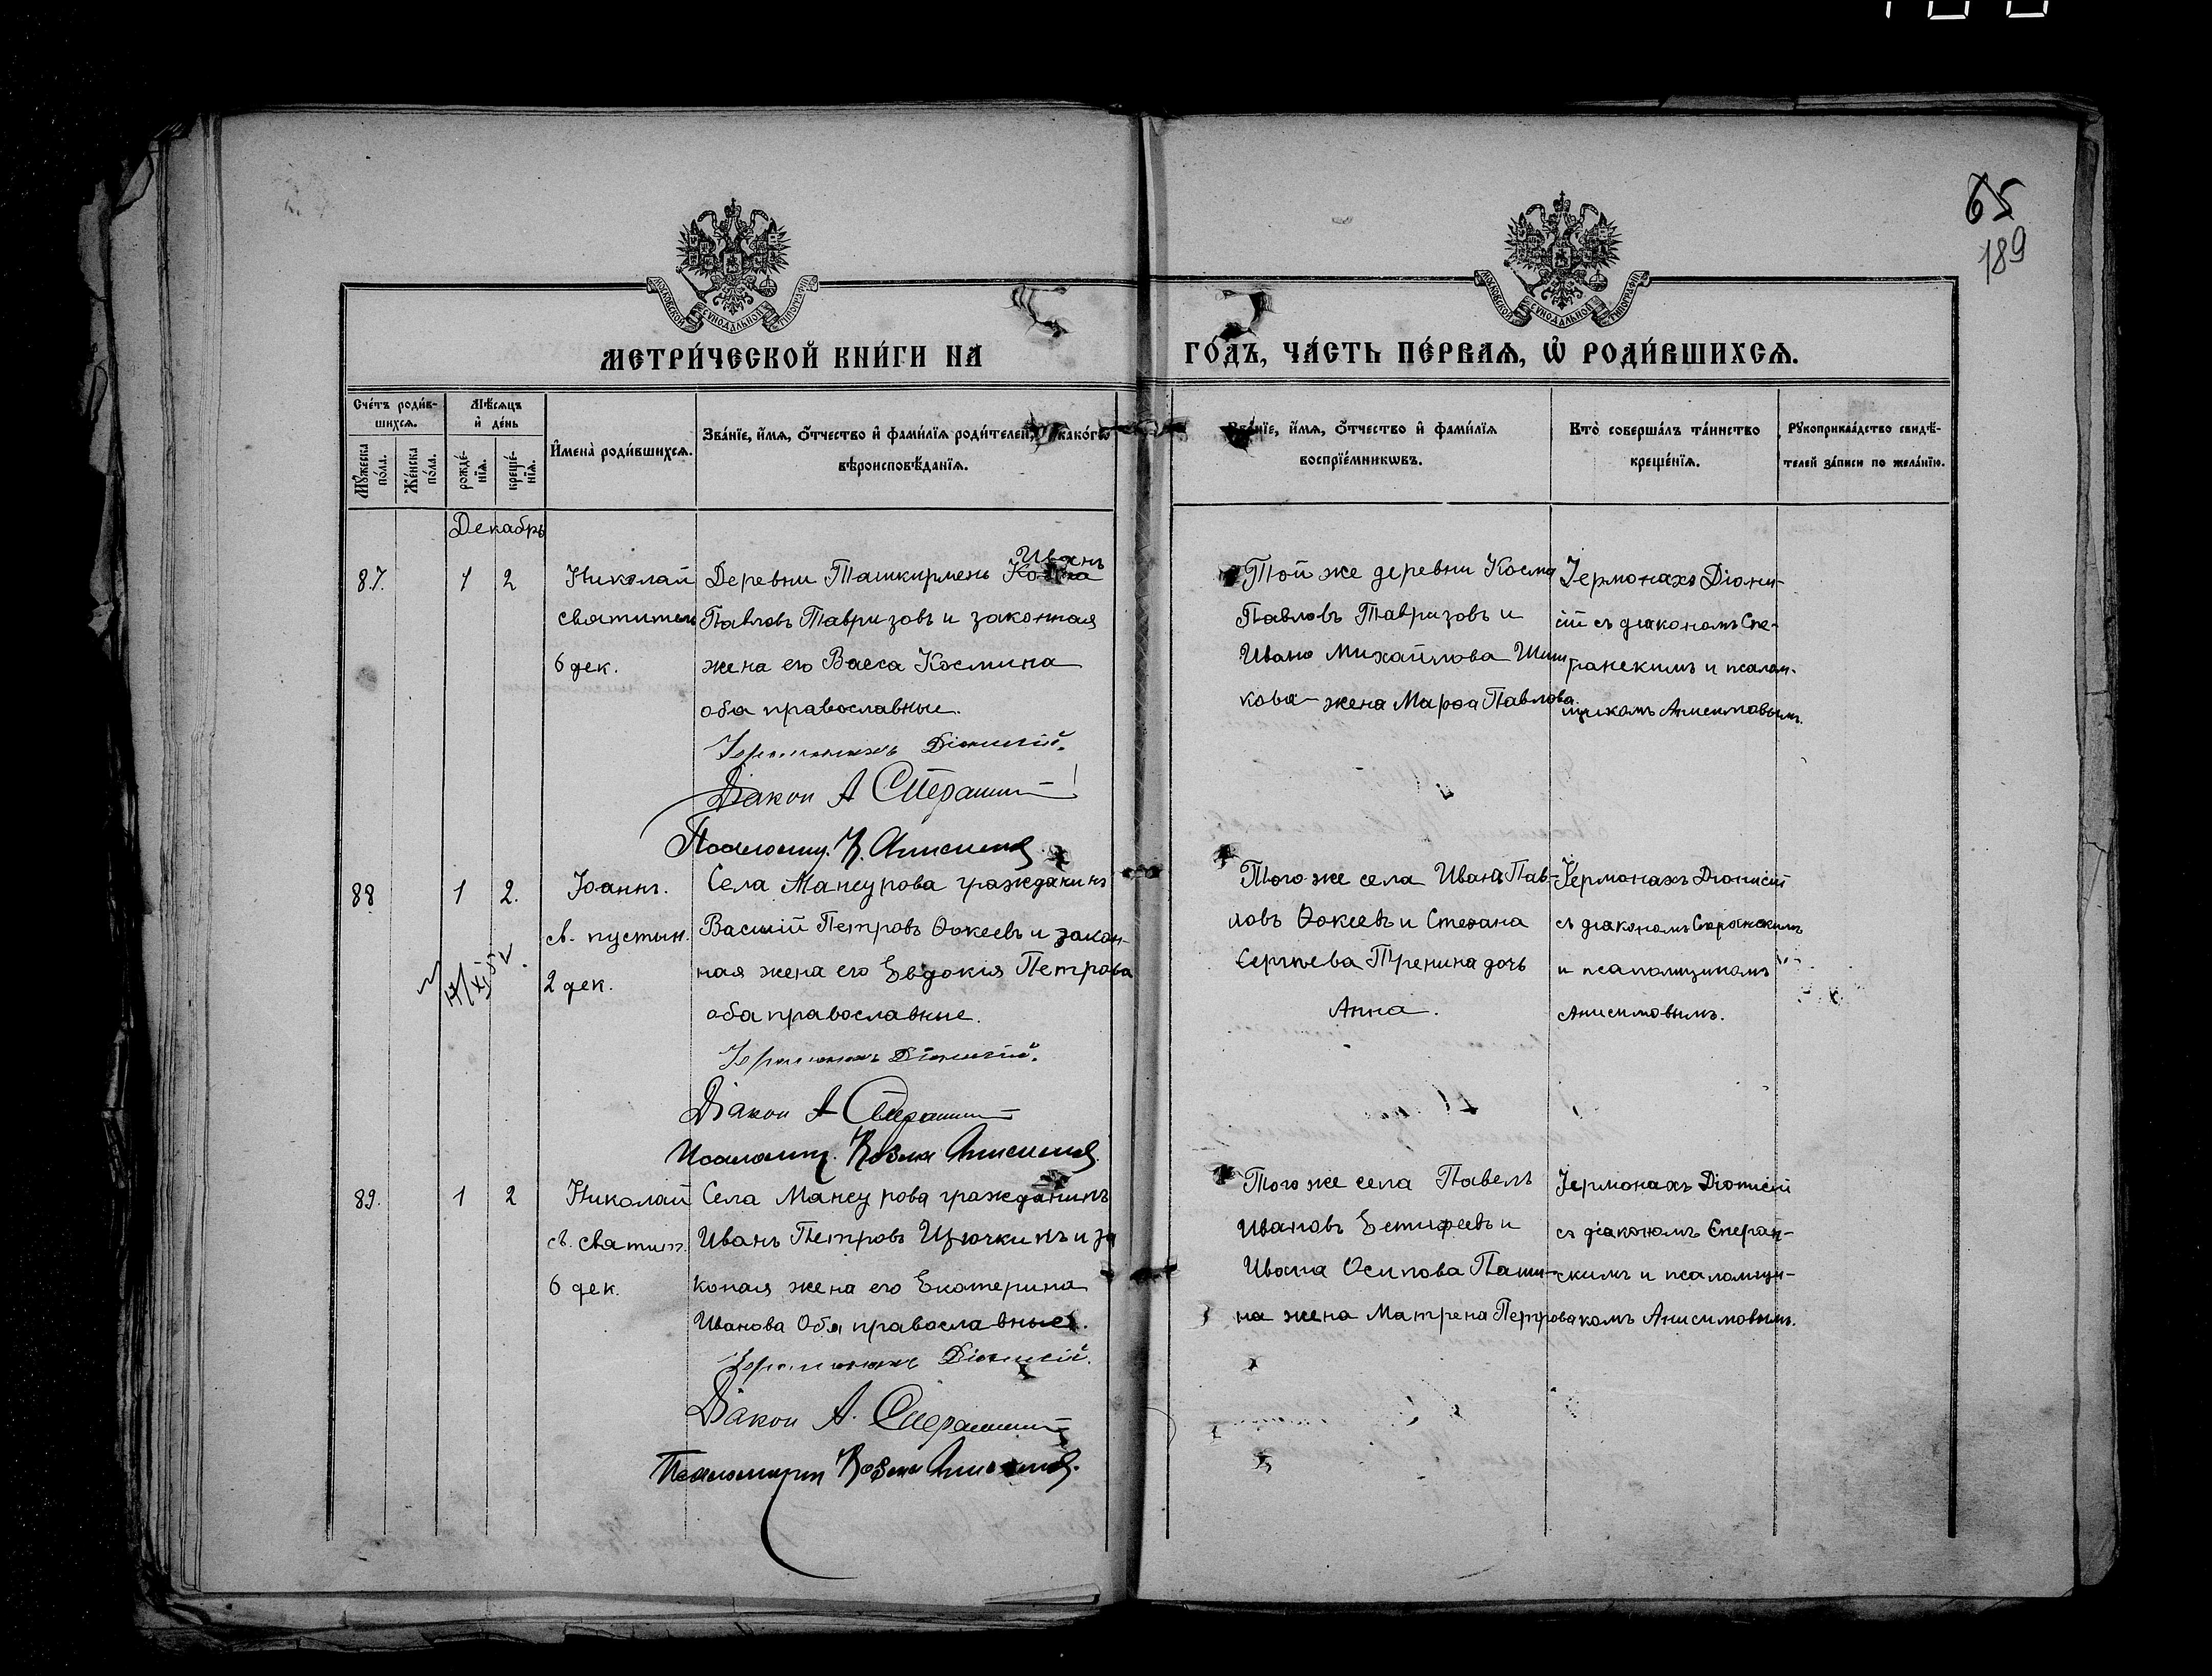 65
189
МОСКОВСКОЙ СѴНОДАЛЬНОЙ ТИПОГРАФІИ
МОСКОВСКОЙ СѴНОДАЛЬНОЙ ТИПОГРАФІИ
МЕТРИ́ЧЕСКОЙ КНИ́ГИ НА ГО́ДЪ, ЧА́СТЬ ПЕ́РВАѦ, Ѡ҆ РОДИ́ВШИХСѦ.
Сче́тъ роди́в-
шихсѧ.
Мѣ́сѧцъ
и҆ де́нь
Мꙋ́жеска
по́ла.
Же́нска
по́ла.
рожде́-
нїѧ.
креще́-
нїѧ.
И҆мена̀ роди́вшихсѧ.
Зва́нїе, и҆́мѧ, ѻ҆́тчество и҆ фами́лїѧ роди́телей, како́гѡ
вѣроисповѣ́данїѧ.
Зва́нїе, и҆́мѧ, ѻ҆́тчество и҆ фами́лїѧ
воспрїе́мникѡвъ.
Кто̀ соверша́лъ та́инство
креще́нїѧ.
Рꙋкоприкла́дство свидѣ́-
телей за́писи по жела́нїю.
Декабрь
87. 1 2
Николай
святител
6 дек.
Иванъ
Деревни Ташкирмень
Павловъ Тавризовъ и законная
жена его Васса Космина
оба православные.
Іеромонахъ Діонисій.
Діакон А Сперанскій
Псаломщ. К. Анисимов
Той же деревни Косма
Павловъ Тавризовъ и
Ивана Михайлова Шиш
кова жена Марѳа Павлова.
Іермонахъ Діони-
сій съ діакономъ Спе-
ранскимъ и псалом-
щикомъ Анисимовымъ.
88 1 2.
Іоаннъ.
св. пустын.
2 дек.
Села Мансурова гражданинъ
Василій Петровъ Ѳокеевъ и закон-
ная жена его Евдокія Петрова
оба православные.
Іеромонахъ Діонисій.
Діакон А Сперанскій
Псаломщ. Козма Анисимов
Того же села Иванъ Пав-
ловъ Ѳокеевъ и Стефана
Сергѣева Тренина дочь
Анна.
Іермонахъ Діонисій
съ діакономъ Сперанскимъ
и псаломщикомъ
Анисимовымъ.
89. 1 2
Николай
св. святит.
6 дек.
Села Мансурова гражданинъ
Иванъ Петровъ и за
коная жена его Екатерина
Иванова Оба православные.
Іеромонахъ Діонисій.
Діакон А. Сперанскій
Псаломщик Козма Анисимов.
Того же села Павелъ
Ивановъ Естифеевъ и
Ивана Осипова Паши-
на жена Матрена Петрова
Іермонахъ Діонисій
съ діакономъ Сперан-
скимъ и псаломщи-
комъ Анисимовымъ.